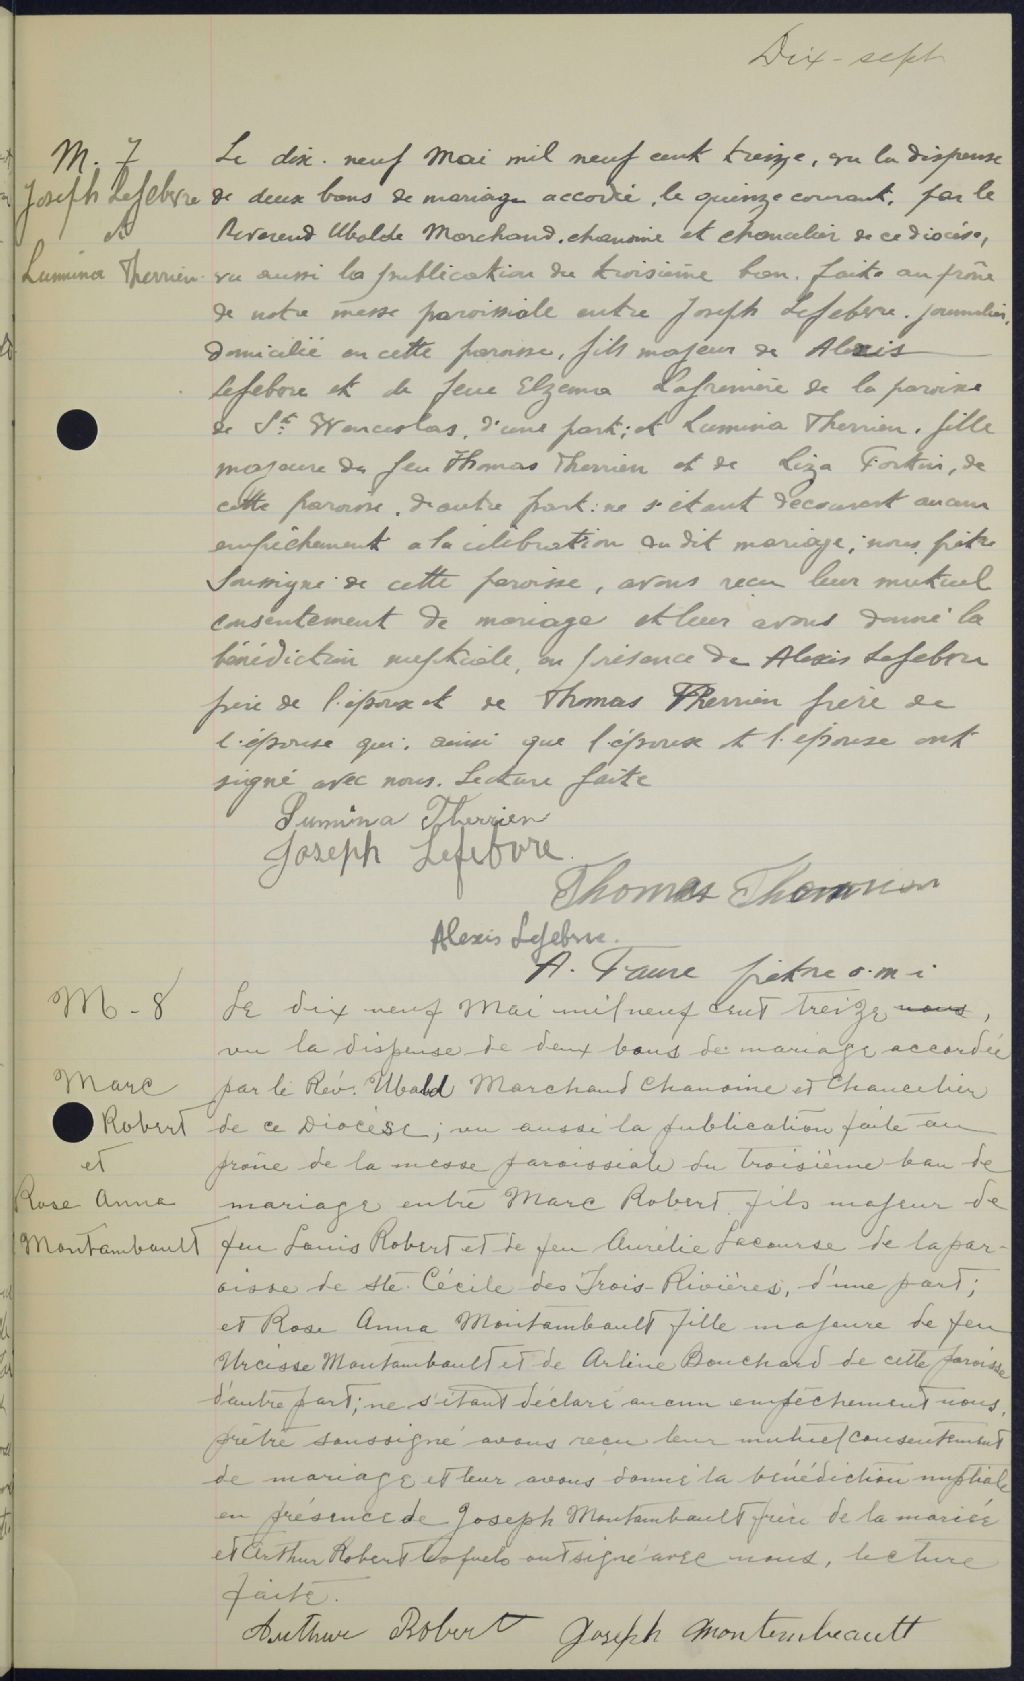 Dix-sept
M. 7
Joseph Lefebvre
et
Lumina Therrien
Le dix. neuf Mai mil neuf cent treize, vu la dispense
de deux bans de mariage accordé, le quinze courant, par le
Reverend Ubalde Marchand, chanoine et chancelier de ce diocèse,
vu aussi la publication du troisième ban. faite au prône
de notre messe paroissiale entre Joseph Lefebvre. journalier,
domicilié en cette paroisse, fils majeur de Alexis
Lefebvre et de feue Elzema Lafrenière de la paroisse
de St Wenceslas, d'une part; et Lumina Therrien, fille
majeure de feu Thomas Therrien et de Liza Fortin, de
cette paroisse, d'autre part: ne s'étant découvert aucun
empêchement a la célébration du dit mariage; nous, prêtre
Soussigné de cette paroisse, avons reçu leur mutuel
consentement de mariage et leur avons donné la
bénédiction nuptiale, en présence de Alexis Lefebvre
père de l'époux et de Thomas Therrien frère de
l'épouse qui, ainsi que l'époux et l'épouse ont
signé avec nous. Lecture faite
Lumina Therrien
Joseph Lefebvre
Thomas
Alexis Lefebvre.
A. Faure prêtre o. m i
M - 8
Marc
Robert
et
Rose Anna
Montambault
Le dix neuf Mai mil neuf cent treize nous,
vu la dispense de deux bans de mariage accordée
par le Rév. Ubald Marchand Chanoine et Chancelier
de ce Diocèse; vu aussi la publication faite au
prône de la messe paroissiale du troisième ban de
mariage entre Marc Robert fils majeur de
feu Louis Robert et de feu Aurélie Lacourse de la par-
oisse de Ste Cécile des Trois-Rivières, d'une part;
et Rose Anna Montambault fille majeure de feu
Urcisse Montambault et de Arline Bouchard de cette paroisse
d'autre part; ne s'étant déclaré aucun empêchement nous,
prêtre soussigné avons reçu leur mutuel consentement
de mariage et leur avons donné la bénédiction nuptiale
en présence de Joseph Montambault frère de la mariée
et Arthur Robert lesquels ont signé avec nous, lecture
faite.
Arthur Robert Joseph Montembeault